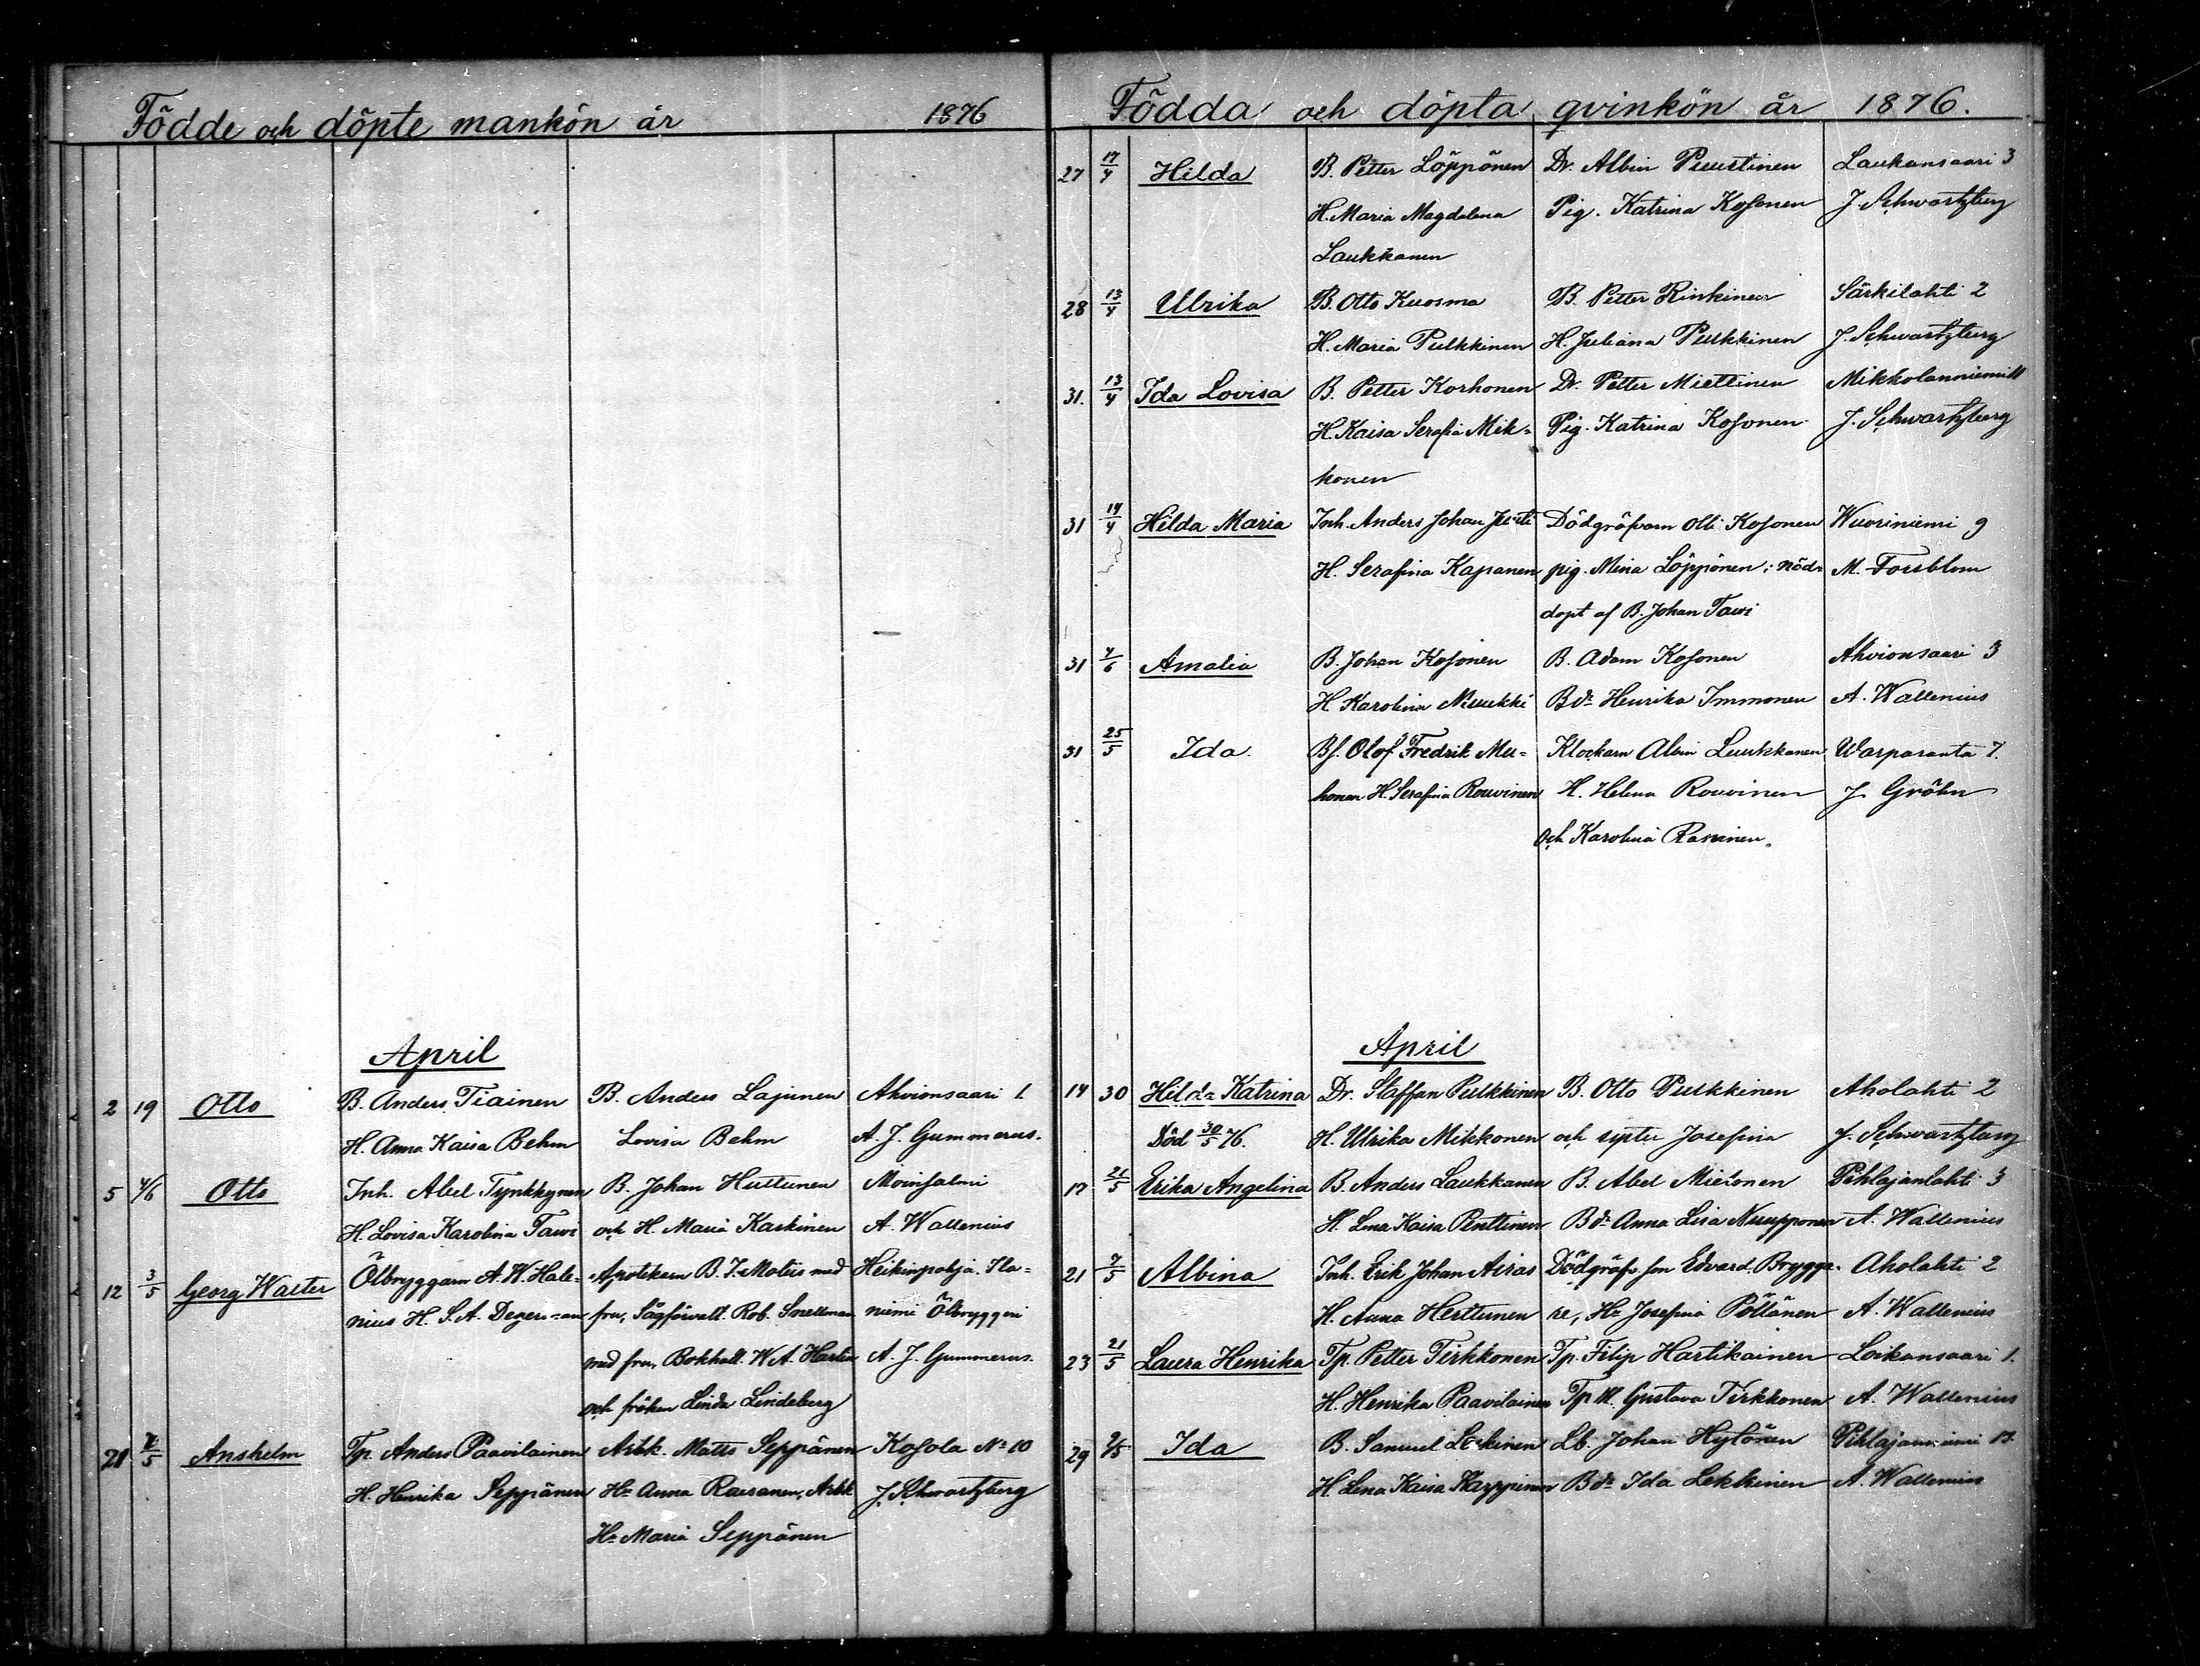 Födde och döpte mankön år 1876
April
2 19 Otto B. Anders Tiainen B. Anders Lajunen Ahvionsaari 1.
H. Anna Kaisa Behm Lovisa Behm A. J. Gummerus.
5 4/6 Otto Inh. Abel Tynkkynen B. Johan Huttunen Moinsalmi
H. Lovisa Karolina Tawi och H. Maria Kaskinen A. Wallenius
12 3/5 Georg Walter Ölbryggarn A. W. Hale- Apotekarn B. J. Molus med Heikinpohja. Ila-
nius H. S. A. Degerman fru, Sågförvalt. Rob. Snellman niemi Ölbryggeri
med fru, Bokhåll. W. A. Hartin A. J. Gummerus.
och fröken Linda Lindeberg
21 7/5 Anshelm Tp. Anders Paavilainen Arbk. Matts Seppänen Kosola No 10
H. Henrika Seppänen Hu Anna Raesanen, Arbk J. Schwartzberg
Hu Maria Seppänen
Födda och döpta qvinkön år 1876.
27 17/4 Hilda B. Petter Löppönen Dr. Albin Puustinen Laukansaari 3
H. Maria Magdalena Pig. Katrina Kosonen J. Schwartzberg
Laukkanen
28 13/4 Ulrika B. Otto Kuosma B. Petter Rinkinen Särkilahti 2
H. Maria Pulkkinen H. Juliana Pulkkinen J. Schwartzberg
31. 13/4 Ida Lovisa B. Petter Korhonen Dr. Petter Miettinen Mikkolanniemi 11
H. Kaisa Serafia Mik- Pig. Katrina Kosonen J. Schwartzberg
konen
31 14/4 Hilda Maria Inh. Anders Johan Dödgräfvarn Olli Kosonen Wuoriniemi 9
H. Serafina Kapanen pig. Mina Löppönen; nöd- M. Forsblom
döpt af B. Johan Tawi
31 4/6 Amalia B. Johan Kosonen B. Adam Kosonen Ahvionsaari 3
H. Karolina Muukki Bdr Henrika Immonen A. Wallenius
31 25/5 Ida. Bs. Olof Fredrik Mu- Klockarn Albin Luukkanen Warparanta 7.
honen H. Serafina Rouvinen H. Helena Rouvinen J. Gröhn
och Karolina Raninen.
April
14 30 Hilda Katrina Dr. Staffan Pulkkinen B. Otto Pulkkinen Aholahti 2
Död 30/5 76. H. Ulrika Mikkonen och syster Josefina J. Schwartzberg
17 21/5 Erika Angelina B. Anders Laukkanen B. Abel Mietonen Pihlajanlahti 3
H. Lena Kaisa Penttinen Bdr Anna Lisa Nuupponen A. Wallenius
21 7/5 Albina Inh. Erik Johan Airas Dödgräfv. son Edvard Brygga- Aholahti 2
H. Anna Herttunen re, Hu Josefina Pöllänen A. Wallenius
23 21/5 Laura Henrika Tp. Petter Tirkkonen Tp. Filip Hartikainen Loikansaari 1.
H. Henrika Paavilainen Tp H. Gustava Tirkkonen A. Wallenius
29 7/5 Ida B. Samuel Lekinen Lb. Johan Hylönen Pihlajaniemi 17.
H. Lena Kaisa Kappinen Bdr Ida Lekkinen A. Wallenius